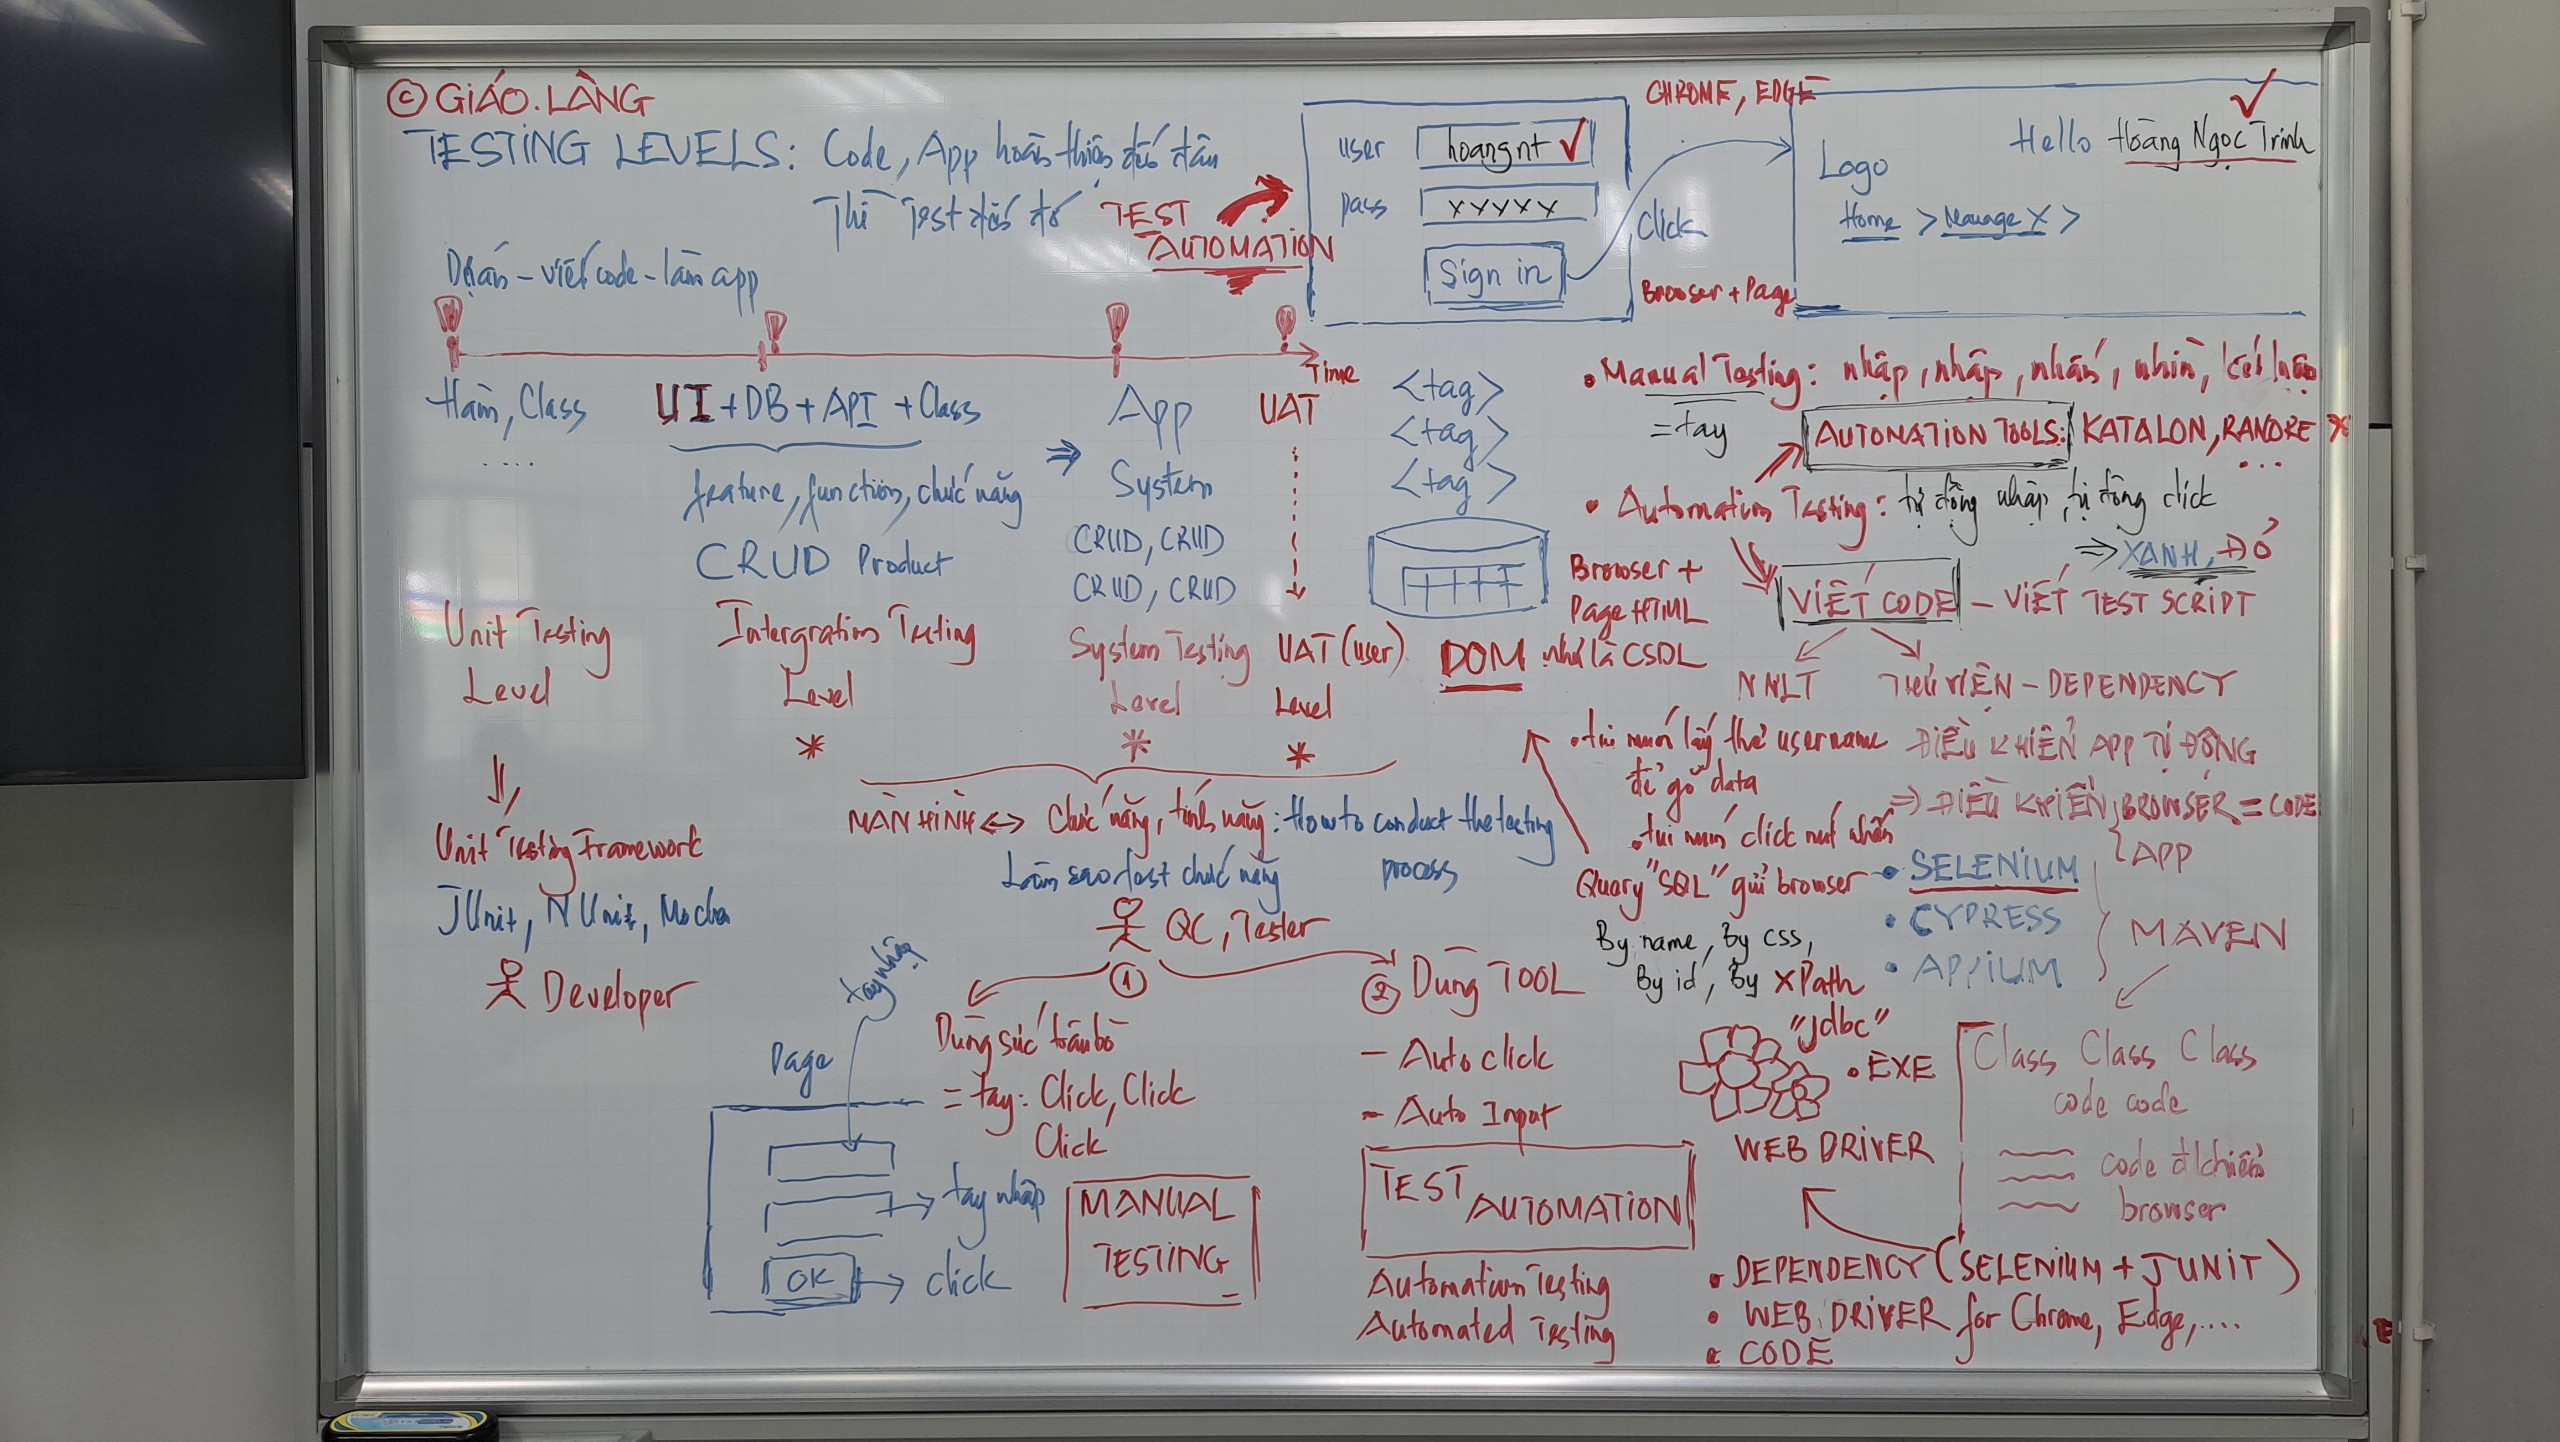 © GIÁO.LÀNG
TESTING LEVELS: Code, App hoàn thiện đến đâu
Thì Test đến đó
TEST
AUTOMATION
Dự án - viết code - làm app
Time
Hàm, Class
....
UI + DB + API + Class
feature, function, chức năng
CRUD Product
⇒
App
System
CRUD, CRUD
CRUD, CRUD
UAT
Unit Testing
Level
Intergration Testing
Level
*
System Testing
Level
*
UAT (user)
Level
*
Unit Testing Framework
JUnit, NUnit, Mocha
Developer
MÀN HÌNH ↔ Chức năng, tính năng: How to conduct the testing
process
Làm sao test chức năng
QC, Tester
①
Dùng sức trâu bò
= tay: Click, Click
Click
MANUAL
TESTING
② Dùng TOOL
- Auto click
- Auto Input
TEST
AUTOMATION
Automation Testing
Automated Testing
Page
tay nhập
tay nhập
OK → click
user hoangnt ✓
pass xxxxx
Sign in
CHROME, EDGE
Click
Browser + Page
Hello Hoàng Ngọc Trinh
Logo
Home > Manage X >
<tag>
<tag>
<tag>
Browser +
Page HTML
DOM như là CSDL
• Manual Testing: nhập, nhập, nhấn, nhìn, kết luận
= tay
AUTOMATION TOOLS: KATALON, RANOREX
...
• Automation Testing: tự động nhập, tự động click
⇒ XANH, ĐỎ
VIẾT CODE - VIẾT TEST SCRIPT
NNLT
THƯ VIỆN - DEPENDENCY
ĐIỀU KHIỂN APP TỰ ĐỘNG
⇒ ĐIỀU KHIỂN BROWSER = CODE
APP
• tui muốn lấy thẻ username
để gõ data
• tui muốn click nút nhấn
Query "SQL" gửi browser
By name, By css,
By id, By xPath
• SELENIUM
• CYPRESS
• APPIUM
MAVEN
"Jdbc"
• EXE
WEB DRIVER
Class Class Class
code code
code đ/khiển
browser
• DEPENDENCY (SELENIUM + JUNIT)
• WEB DRIVER for Chrome, Edge,....
• CODE